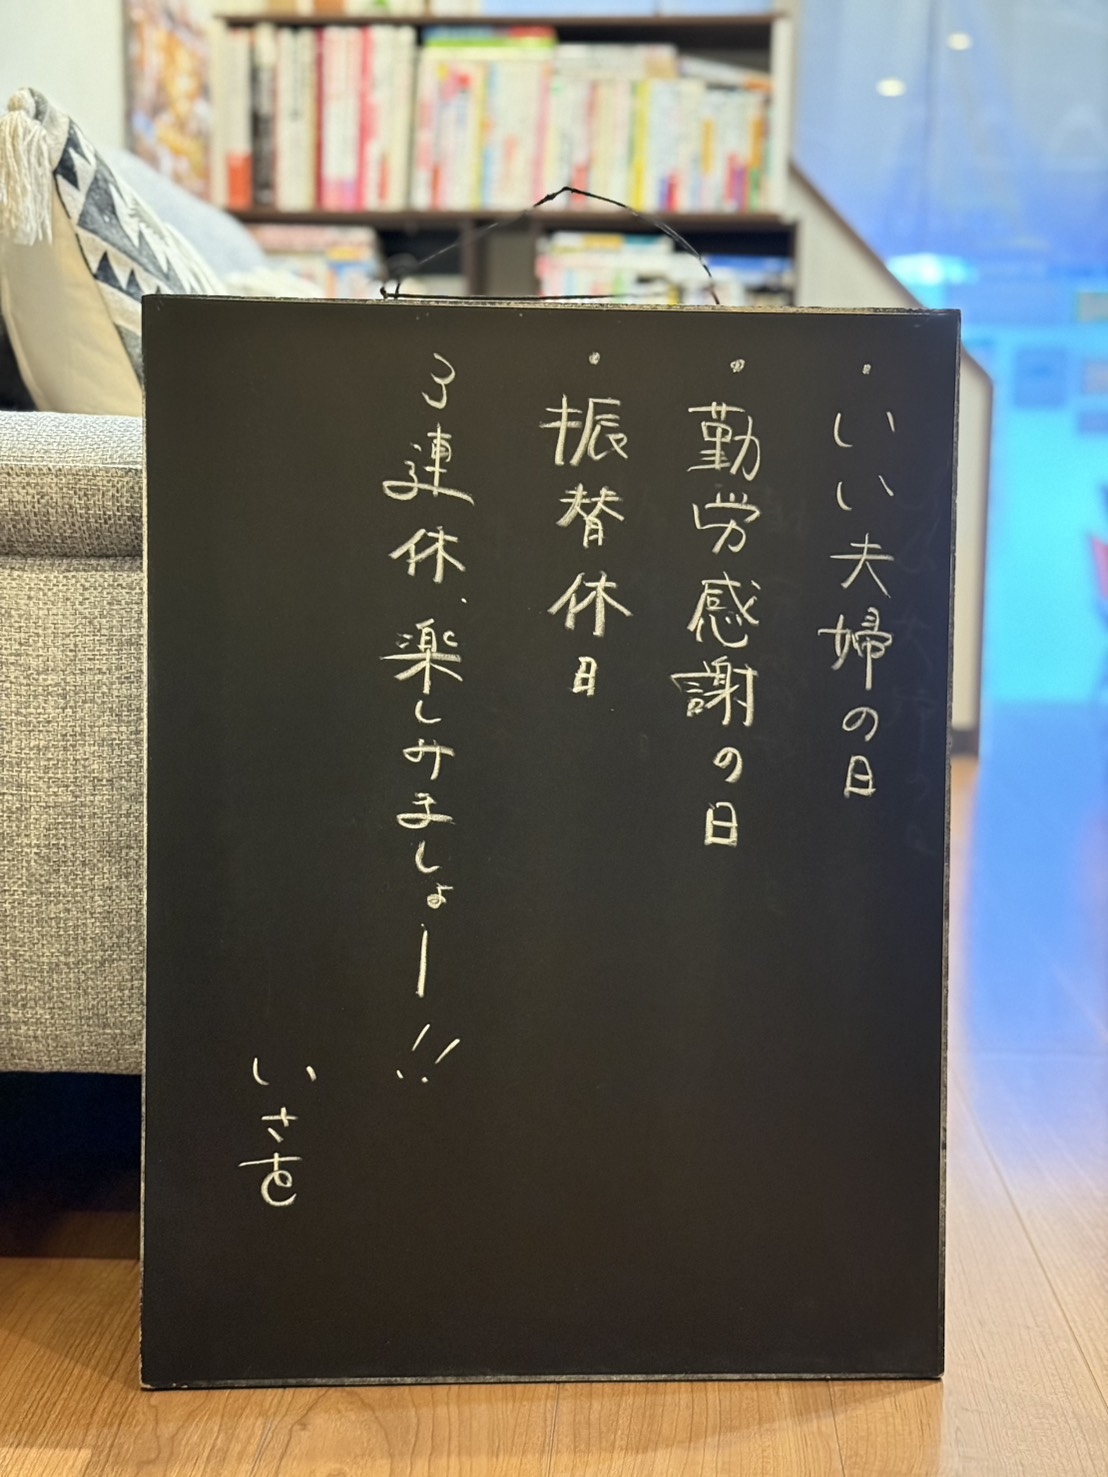 ・いい夫婦の日
・勤労感謝の日
・振替休日
3連休、楽しみましょー!!
いさを